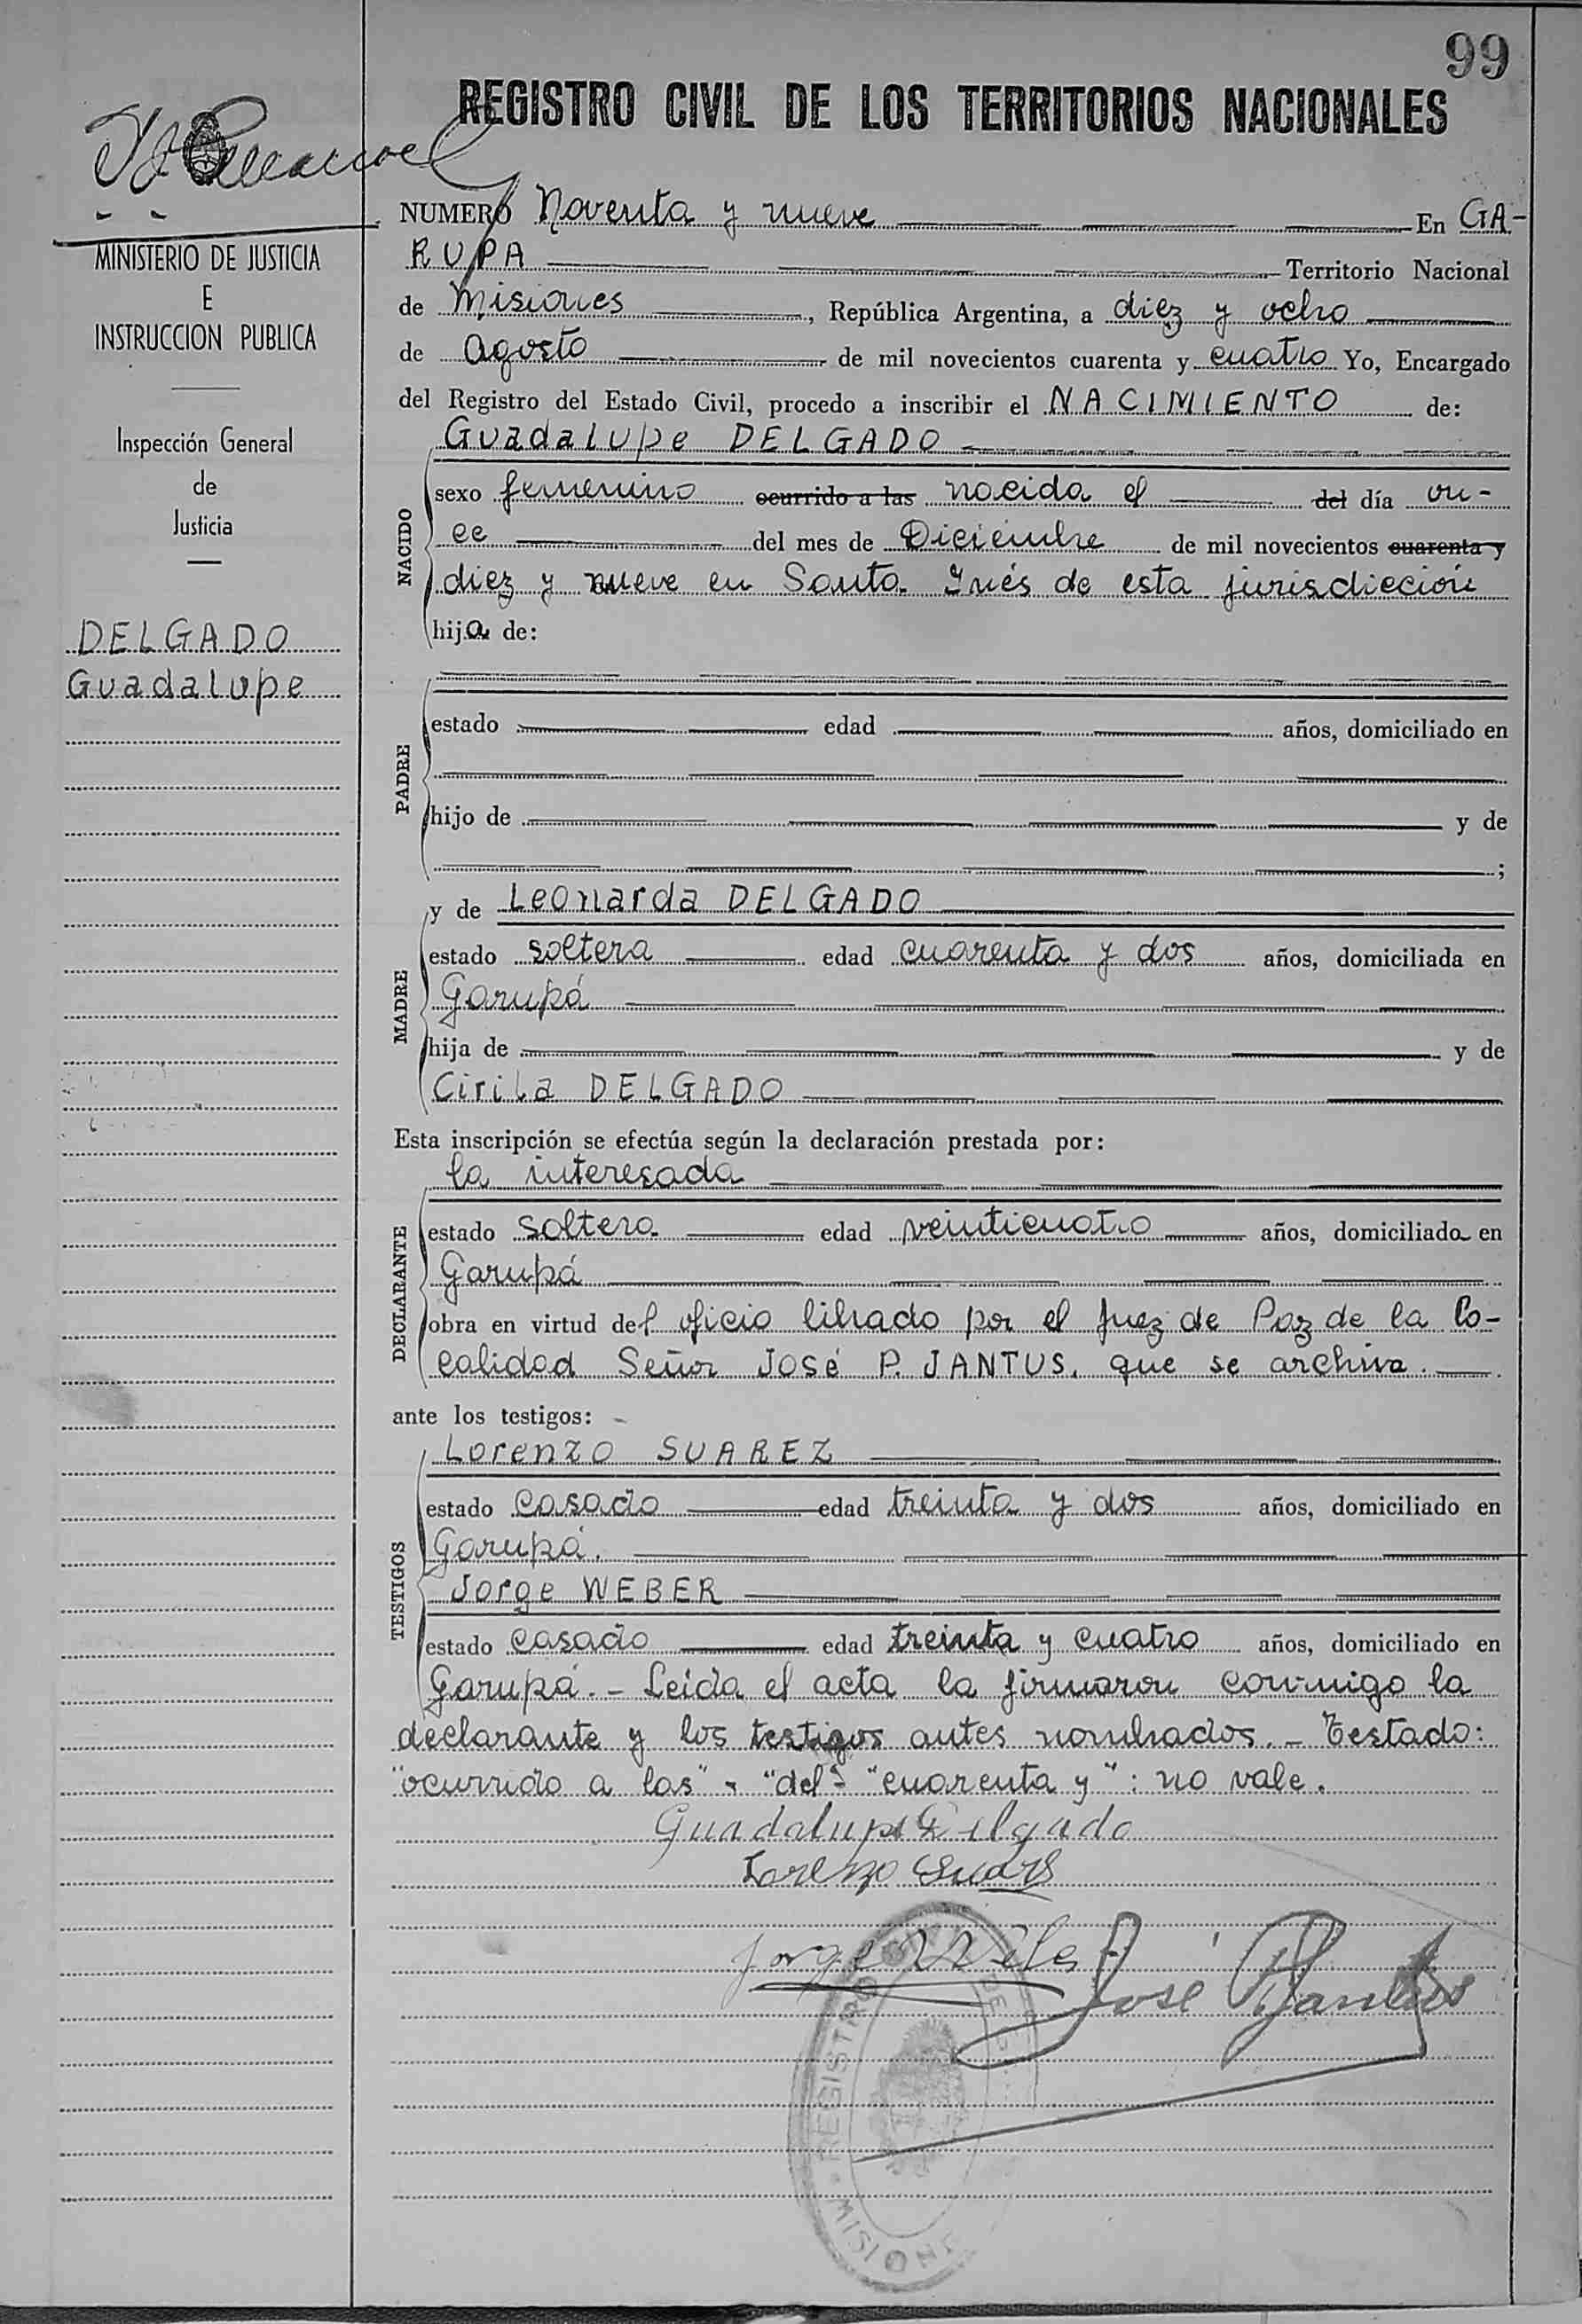 99
REGISTRO CIVIL DE LOS TERRITORIOS NACIONALES
MINISTERIO DE JUSTICIA
E
INSTRUCCION PUBLICA
Inspección General
de
Justicia
DELGADO
Guadalupe
NUMERO Noventa y nueve En GA-
RUPA Territorio Nacional
de Misiones, República Argentina, a diez y ocho
de Agosto de mil novecientos cuarenta y cuatro Yo, Encargado
del Registro del Estado Civil, procedo a inscribir el NACIMIENTO de:
Guadalupe DELGADO
NACIDO
sexo femenino ocurrido a las nacida el del día on-
ce del mes de Diciembre de mil novecientos cuarenta y
diez y nueve en Santa Inés de esta jurisdicción
hija de:
PADRE
estado edad años, domiciliado en
hijo de y de
;
y de Leonarda DELGADO
MADRE
estado soltera edad cuarenta y dos años, domiciliada en
Garupá
hija de y de
Cirila DELGADO
Esta inscripción se efectúa según la declaración prestada por:
la interesada
DECLARANTE
estado soltera edad veinticuatro años, domiciliada en
Garupá
obra en virtud del oficio librado por el Juez de Paz de la lo-
calidad Señor José P. JANTUS, que se archiva.
ante los testigos:
Lorenzo SUAREZ
TESTIGOS
estado casado edad treinta y dos años, domiciliado en
Garupá.
Jorge WEBER
estado casado edad treinta y cuatro años, domiciliado en
Garupá. - Leída el acta la firmaron conmigo la
declarante y los testigos antes nombrados. - Testado:
"ocurrido a las" - "del" - "cuarenta y" : no vale.
Guadalupe Delgado
Lorenzo Suarez
Jorge
José P Jantus
REGISTRO DE
MISIONE